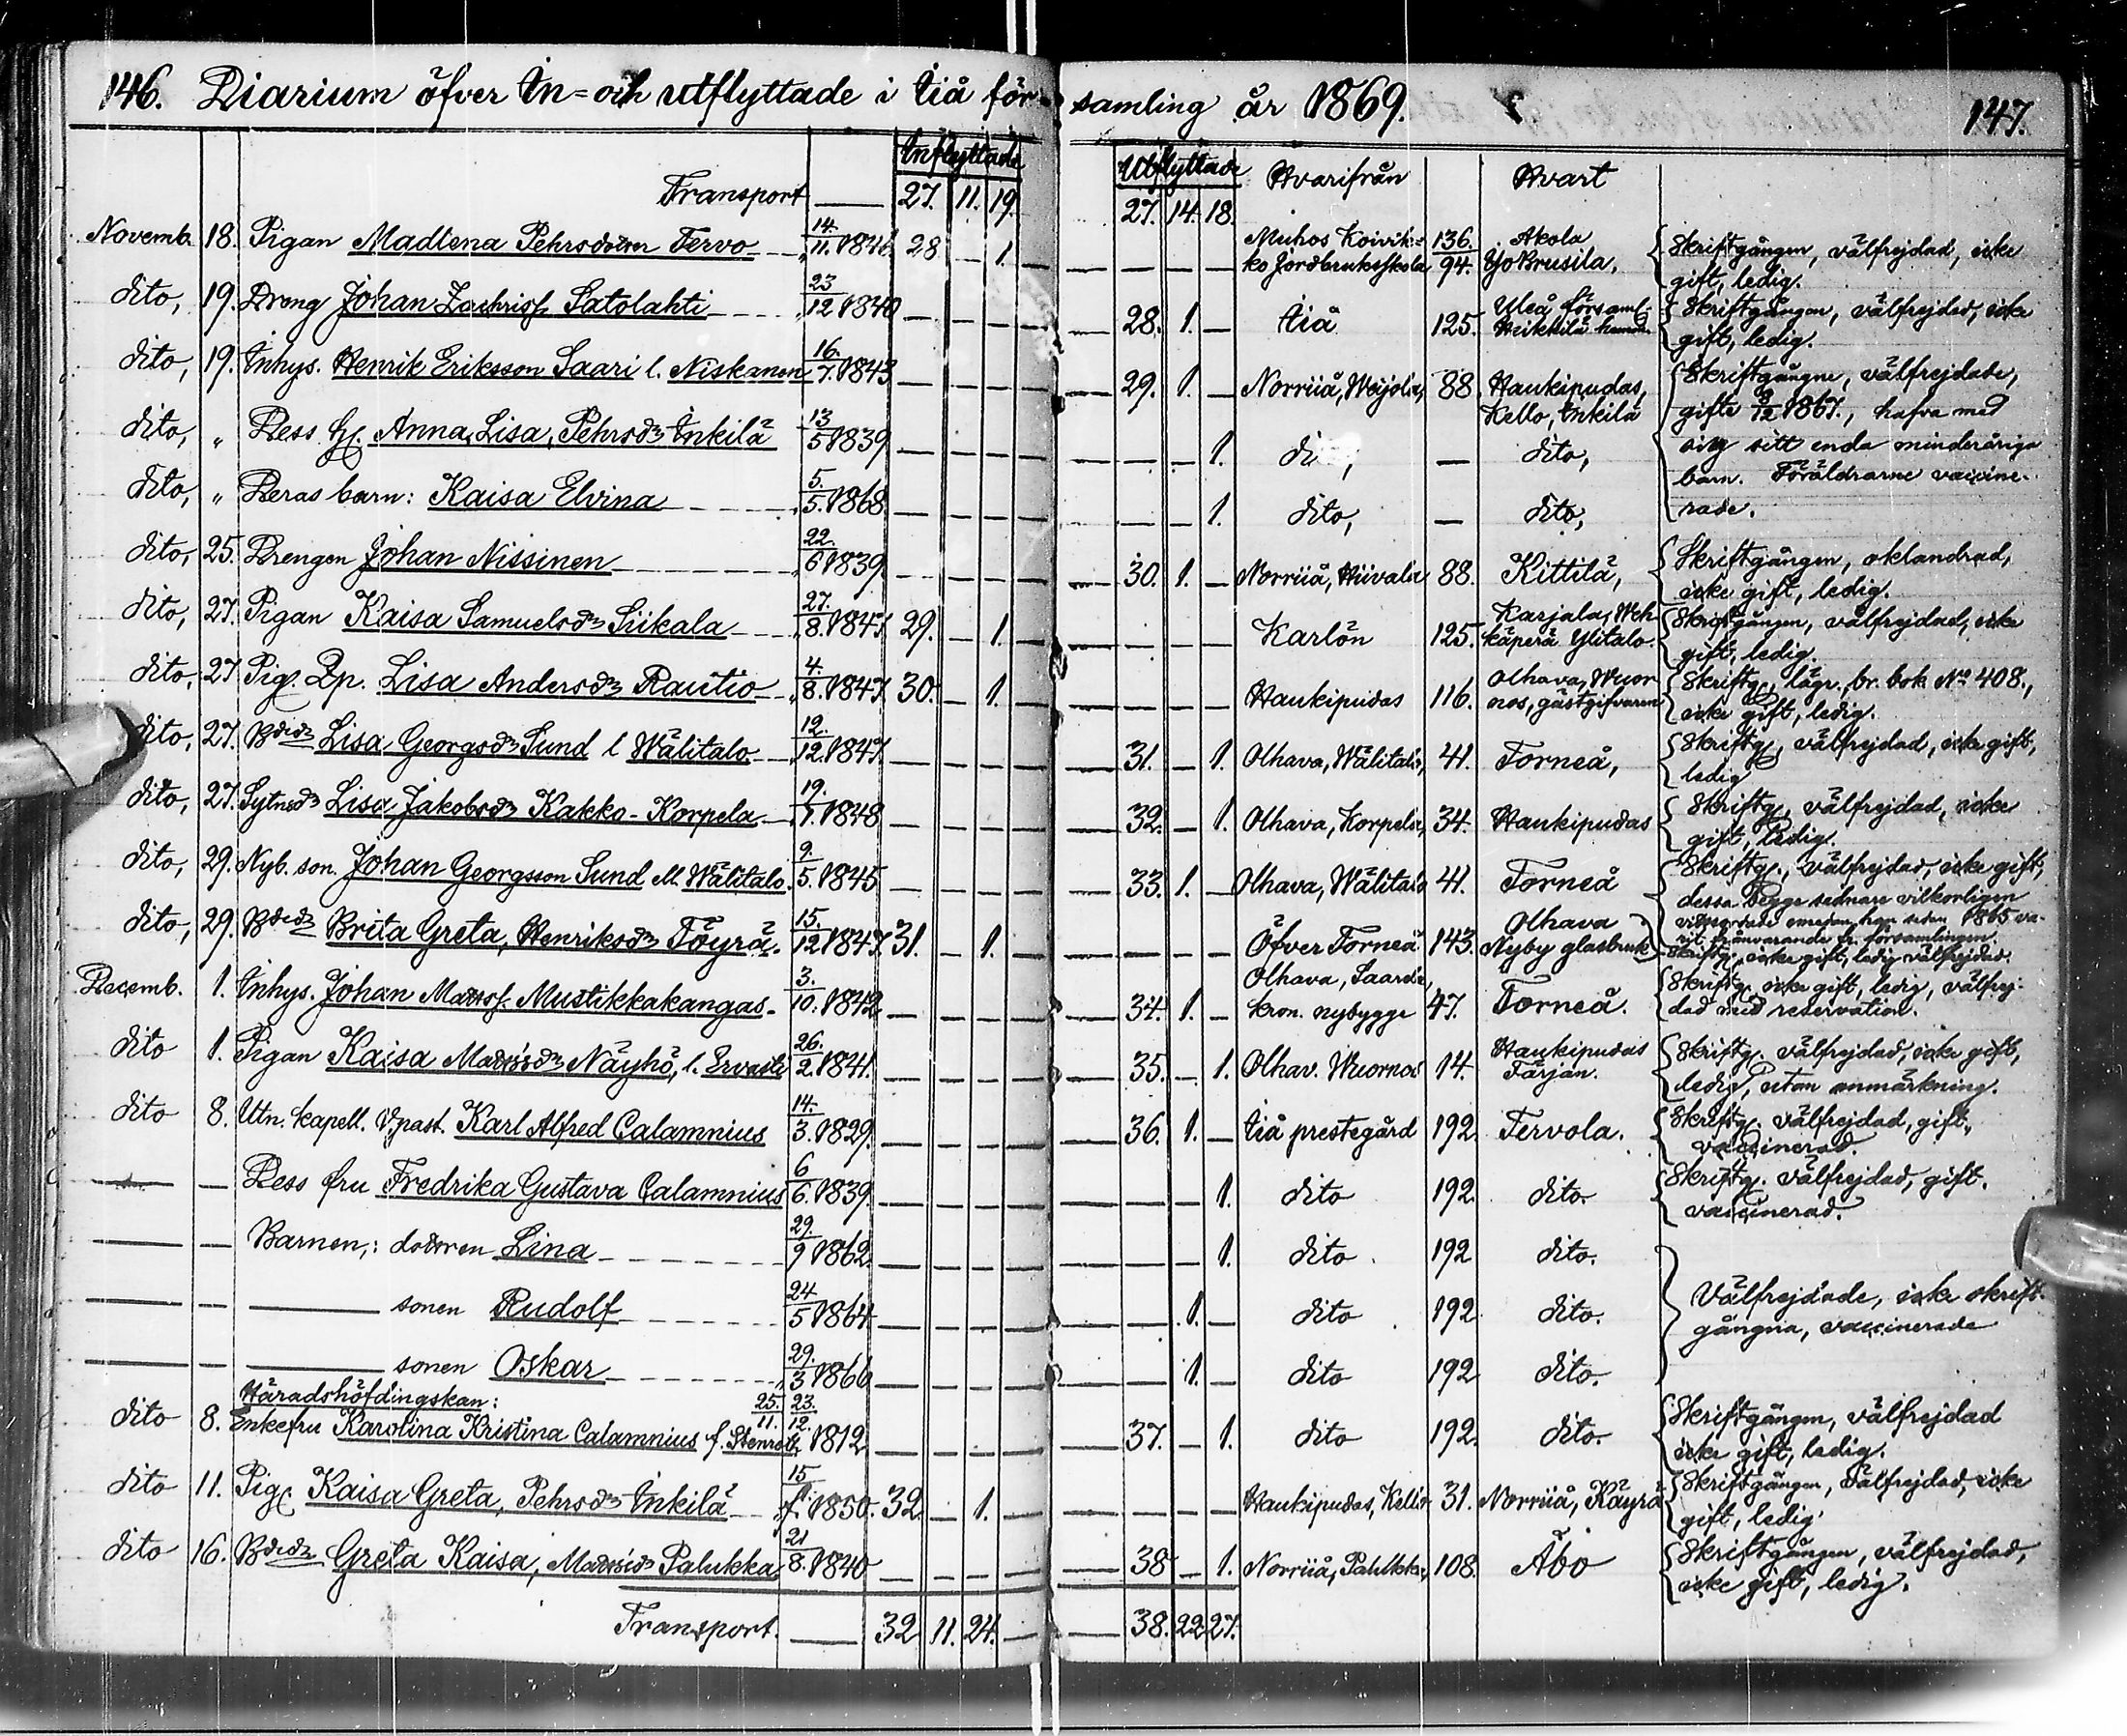 146. Diarium öfver In= och utflyttade i Iiå för-samling år 1869. 147.
Inflyttade Utflyttade Hvarifrån Hvart
Transport 27. 11. 19. 27. 14. 18.
Novemb. 18. Pigan Madlena Pehrsdotter Tervo 14./11. 1846 28. 1. Muhos Koivik= 136. Akola Skriftgången, välfrejdad, icke
ko Jordbruksskola 94. Yo Brusila, gift, ledig.
dito, 19. Dreng Johan Zachriss. Satolahti 23/12 1840 28. 1. Iiå 125. Uleå församl. Skriftgången, välfrejdad, icke
Heikkilä gift, ledig.
dito, 19. Inhys. Henrik Eriksson Saari l. Niskanen 16./7. 1843 29. 1. Norriiå, Weijola, 88. Haukipudas, Skriftgångne, välfrejdade,
Kello, Inkilä gifte 1867., hafva med
dito, „ Dess h. Anna Lisa, Pehrsdr Inkilä 13/5 1839 1. dito, sig sitt enda minderåriga
barn. Föräldrarne vaccine-
dito, „ Deras barn: Kaisa Elvina 5./5. 1868 1. dito, dito, rade.
dito, 25. Drengen Johan Nissinen 22./6 1839 30. 1. Norriiå, Hiivala 88. Kittilä, Skriftgången, oklandrad,
icke gift, ledig.
dito, 27. Pigan Kaisa Samuelsdr Siikala 27./8. 1847 29. 1. Karlön 125. Karjala, Weh- Skriftgången, välfrejdad, icke
käperä Ylitalo. gift, ledig.
dito, 27 Pig. Lisa Andersdr Rautio 4./8. 1847 30. 1. Haukipudas 116. Olhava, Wuor- Skriftg., lägr. br. bok No 408.,
nos, gästgifvaren icke gift, ledig.
dito, 27. Bdedr Lisa Georgsdr Sund l Wälitalo 12./12. 1847. 31. 1. Olhava, Wälitalo, 41. Torneå, Skriftg., välfrejdad, icke gift,
ledig
dito, 27. Sytnsdr Lisa Jakobsdr Kakko-Korpela 19. 1848 32. 1. Olhava, Korpela, 34. Haukipudas Skriftg., välfrejdad, icke
gift, ledig.
dito, 29. Nyb. son. Johan Georgsson Sund ell. Wälitalo 9./5. 1845 33. 1. Olhava, Wälitalo 41. Torneå Skriftg., välfrejdad, icke gift,
dessa begge sednare vilkorligen
emedan han sedan 1865 va-
rit frånvarande fr. församlingen.
dito, 29. Bdedr Brita Greta, Henriksdr Töyrä 15./12 1847. 31. 1. Öfver Torneå 143. Olhava Nyby glasbruk Skriftg., icke gift, ledig välfrejdad.
Decemb. 1. Inhys. Johan Matss. Mustikkakangas 3./10. 1842 34. 1. Olhava, Saarela, kron. nybygge 47. Torneå. Skriftg. icke gift, ledig, välfrej-
dad med reservation.
dito 1. Pigan Kaisa Mattsdr Näyhö, l. Ervasti 26./2. 1841. 35. 1. Olhav. Wuornos 14. Haukipudas Skriftg. välfrejdad, icke gift,
Färjan. ledig, utan anmärkning.
dito 8. Utn. kapell. V. past. Karl Alfred Calamnius 14./3. 1829. 36. 1. Iiå prestegård 192 Tervola. Skriftg. välfrejdad, gift,
vaccinerad.
Dess fru Fredrika Gustava Calamnius 6/6. 1839. 1. dito 192. dito. Skriftg. välfrejdad, gift.
vaccinerad.
Barnen,: dottren Lina 29./9 1862. 1. dito 192 dito.
sonen Rudolf 24/5 1864 1. dito 192 dito. Välfrejdade, icke skrift-
gångna, vaccinerade
sonen Oskar 29./3 1866 1. dito 192 dito.
Häradshöfdingskan: 25./11. 23./12.
dito 8. Enkefru Karolina Kristina Calamnius f. 1812 37. 1. dito 192. dito. Skriftgången, välfrejdad
icke gift, ledig.
dito 11. Pig. Kaisa Greta, Pehrsdr Inkilä 15 1850. 32. 1. Haukipudas, Kello 31. Norriiå, Käyrä Skriftgången, välfrejdad, icke
gift, ledig.
dito 16. Bdedr Greta Kaisa, Mattsdr Palukka 21/8. 1840 38 1. Norriiå, Palukka, 108. Åbo Skriftgången, välfrejdad,
icke gift, ledig.
Transport. 32 11. 24. 38. 22 27.